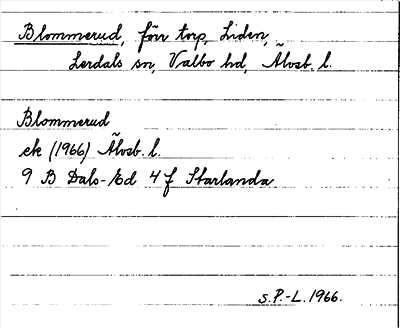 Blommerud, förr torp, Liden,
Lerdals sn, Valbo hd, Älvsb. l.
Blommerud
ek (1966) Älvsb. l.
9 B Dals-Ed 4 f Starlanda
s.P.-L. 1966.